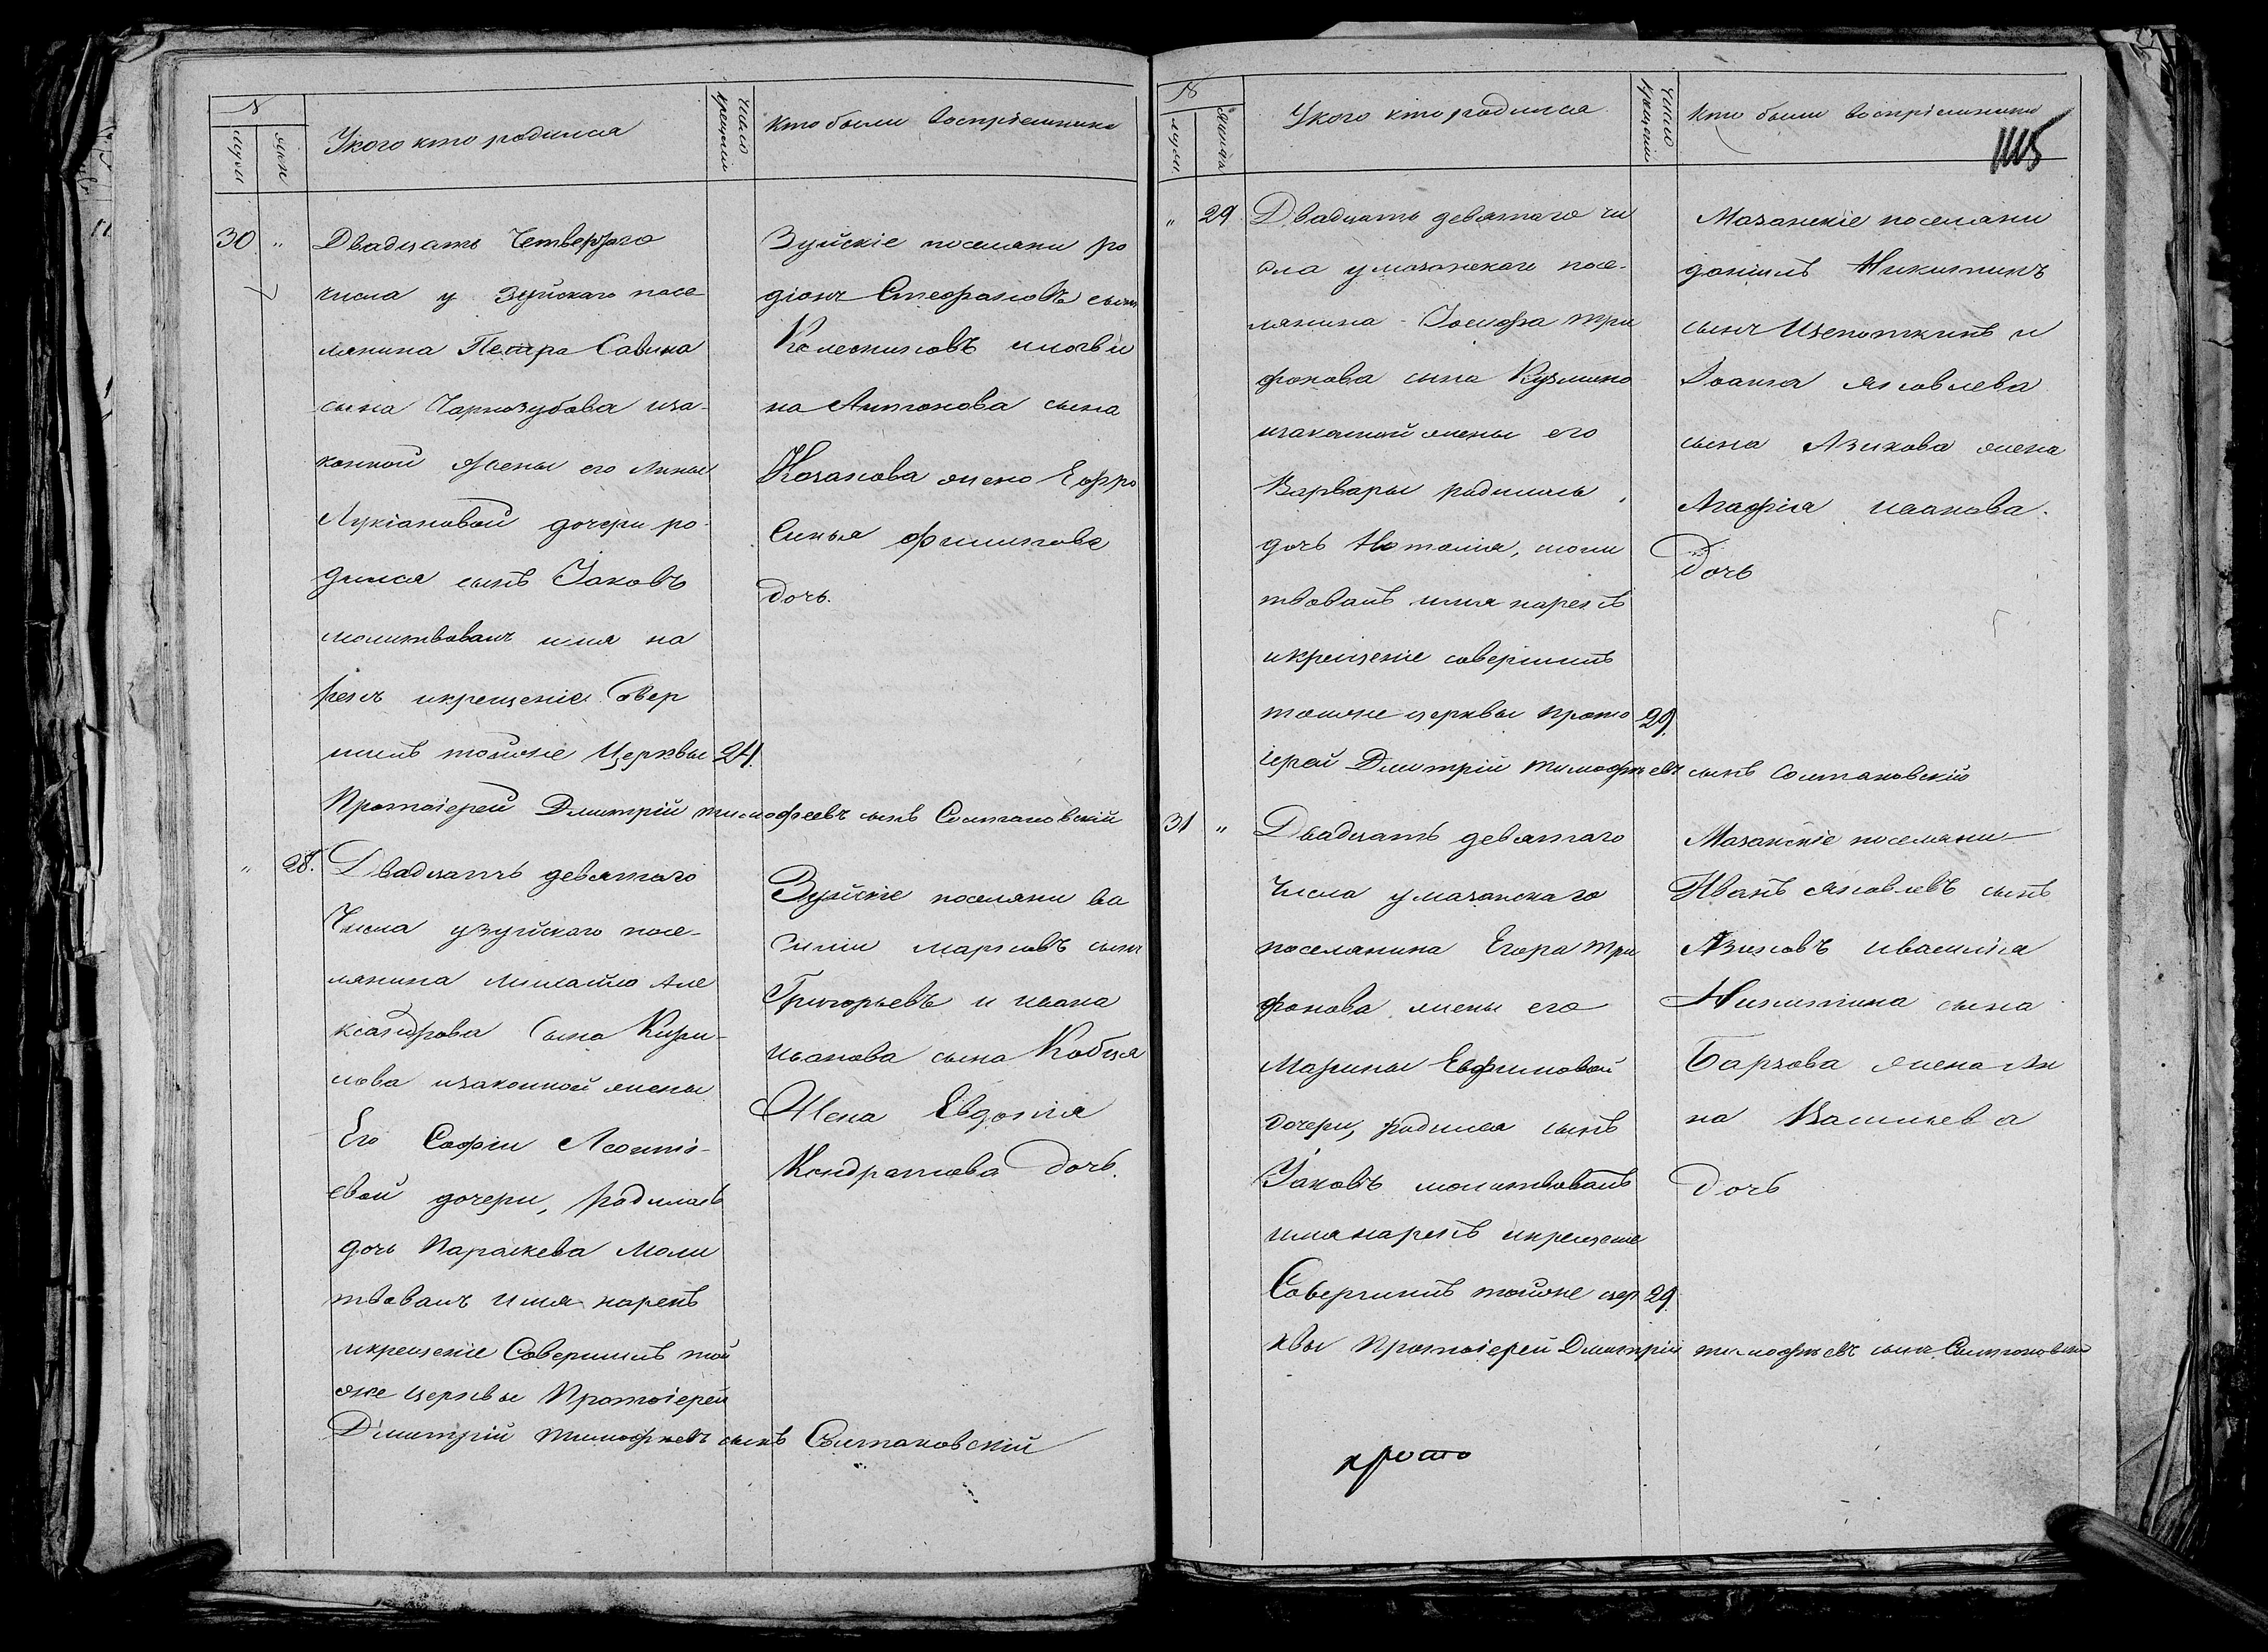 N
муж
жен
У кого кто родился
Число крещенія
Кто были Воспріемники
30 "
Двадцать Четвертаго
числа у Зуйскаго посе
лянина Петра Савина
сына Чарнозубова иза-
конной жены его Анны
Лукіановой дочери ро-
дился сынъ Іаковъ
молитвовалъ имя на
рекъ икрещеніе Совер
шилъ тойже Церквы 24.
Протоіерей Димитрій тимофеевъ сынъ Солтановскій
Зуйскіе поселяни ро
діонъ Стефановъ сынъ
Колесниковъ
на Антонова сына
Казакова жена Ефро
Синья филипова
дочь.
" 28.
Двадцать девятаго
Числа узуйскаго посе-
лянина Михайло Але
ксандрова Сына Кири-
лова изаконной жены
Его Софіи Леонті-
евой дочери, родилась
дочь Параскева Моли
твовалъ Имя нарекъ
икрещеніе Совершилъ той
же церквы Протоіерей
Димитрій тимофѣевъ сынъ Солтановскій
Зуйскіе поселяни ва
силій марковъ сынъ
Григорьевъ и ивана
иванова сына Кобця
Жена Евдокія
Кондратова дочь.
N
муж.
женск
У кого кто родился
Число Крещенія
Кто были воспріемники
115
" 29
Двадцать девятаго чи
сла умазанскаго посе-
лянина Іосифа три
фонова сына Кузмино
изаконной жены его
Варвары родилась
дочь Наталія, моли
твовалъ имя нарекъ
икрещеніе совершилъ
тойже церквы прото 29.
іерей Димитрій тимофѣевъ сынъ Солтановскій
Мазанскіе поселяни
даніилъ Никитинъ
сынъ Щепоткинъ и
Іоанна яковлева
сына Азикова жена
Агафія иванова.
Дочь
31 "
Двадцать девятаго
Числа умазанскаго
поселянина Егора три
фонова жены его
Марины Евфимовой
дочери, родился сынъ
Іаковъ молитвовалъ
имя нарекъ икрещеніе
Совершилъ тойже цер 29.
квы Протоіерей Димитрій тимофѣевъ сынъ Солтановскій
Мазанскіе поселяни
Иванъ яковлевъ сынъ
Азиковъ ивасилія
Никитина сына
Баркова жена Ан
на Васильева
дочь
прото